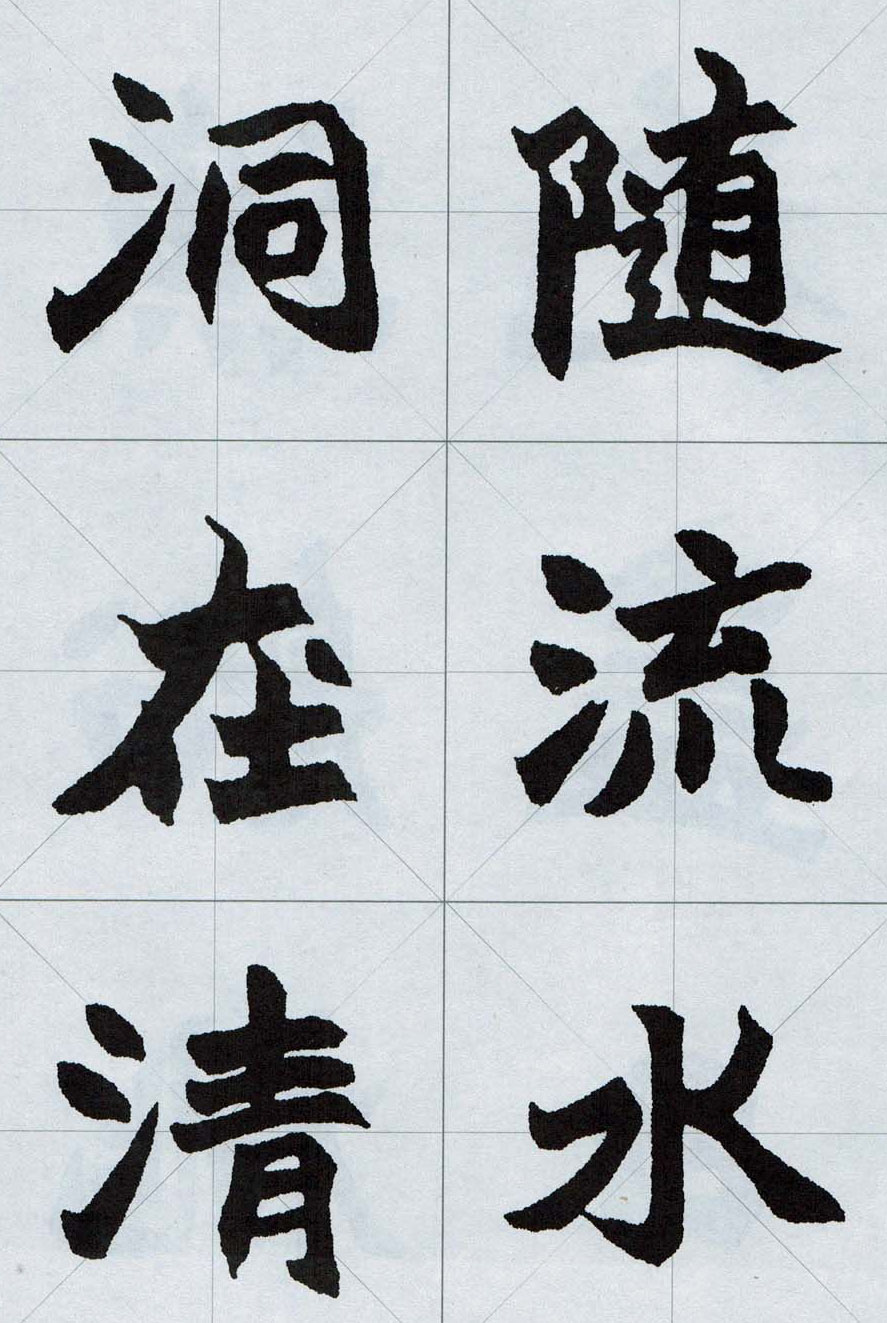 随流水
洞在清